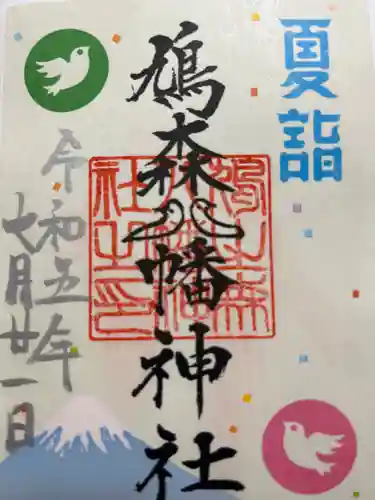 夏詣
鳩森八幡神社
令和五年
七月廿一日